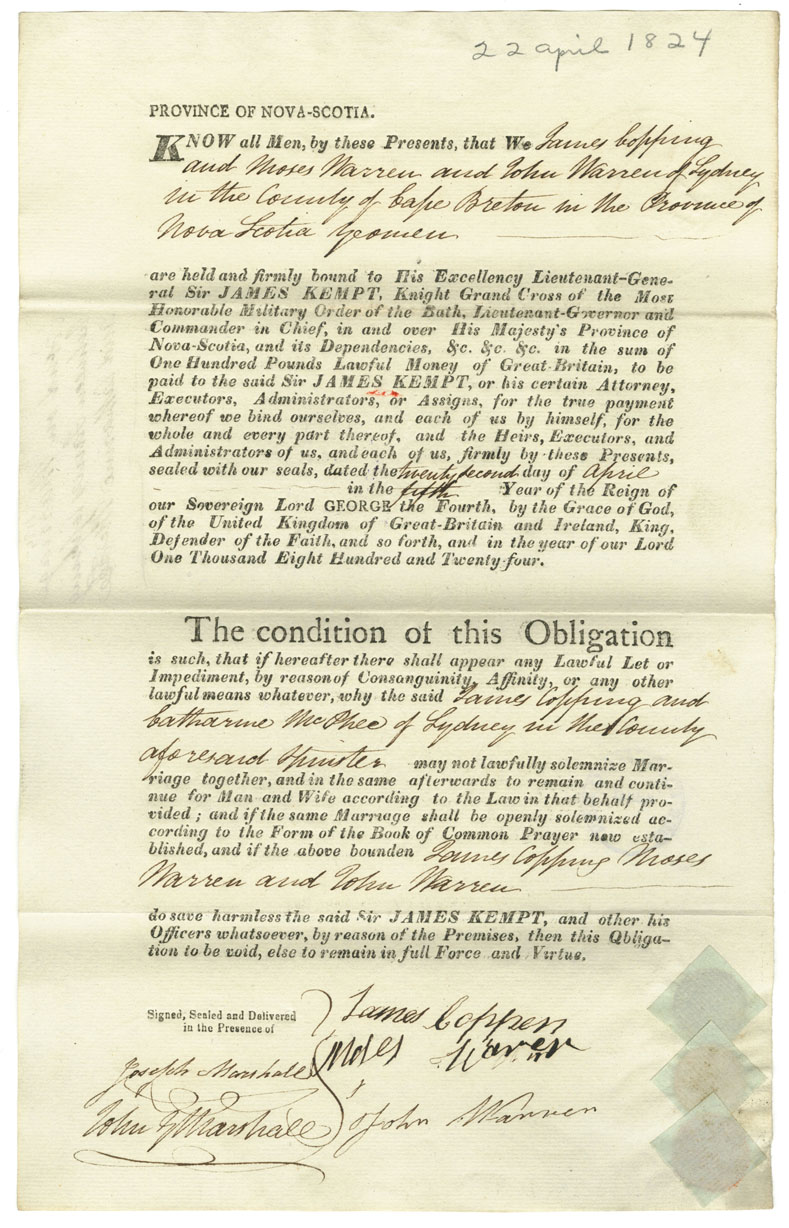 22 april 1824
PROVINCE OF NOVA-SCOTIA.
KNOW all Men, by these Presents, that We James Copping
and Moses Warren and John Warren of Sydney
in the County of Cape Breton in the Province of
Nova Scotia Yeomen
are held and firmly bound to His Excellency Lieutenant-Gene-
ral Sir JAMES KEMPT, Knight Grand Cross of the Most
Honorable Military Order of the Bath, Lieutenant-Governor and
Commander in Chief, in and over His Majesty's Province of
Nova-Scotia, and its Dependencies, &c. &c. &c. in the sum of
One Hundred Pounds Lawful Money of Great-Britain, to be
paid to the said Sir JAMES KEMPT, or his certain Attorney,
Executors, Administrators, or Assigns, for the true payment
whereof we bind ourselves, and each of us by himself, for the
whole and every part thereof, and the Heirs, Executors, and
Administrators of us, and each of us, firmly by these Presents,
sealed with our seals, dated the twenty second day of April
in the fifth Year of the Reign of
our Sovereign Lord GEORGE the Fourth, by the Grace of God,
of the United Kingdom of Great-Britain and Ireland, King,
Defender of the Faith, and so forth, and in the year of our Lord
One Thousand Eight Hundred and Twenty-four.
The condition of this Obligation
is such, that if hereafter there shall appear any Lawful Let or
Impediment, by reason of Consanguinity, Affinity, or any other
lawful means whatever, why the said James Copping and
Catharine McPhee of Sydney in the County
aforesaid Spinster may not lawfully solemnize Mar-
riage together, and in the same afterwards to remain and conti-
nue for Man and Wife according to the Law in that behalf pro-
vided; and if the same Marriage shall be openly solemnized ac-
cording to the Form of the Book of Common Prayer now esta-
blished, and if the above bounden James Copping Moses
Warren and John Warren
do save harmless the said Sir JAMES KEMPT, and other his
Officers whatsoever, by reason of the Premises, then this Obliga-
tion to be void, else to remain in full Force and Virtue.
Signed, Sealed and Delivered
in the Presence of
James Coppen
Moses Waren
Joseph Marshall
John G Marshall
John Warren